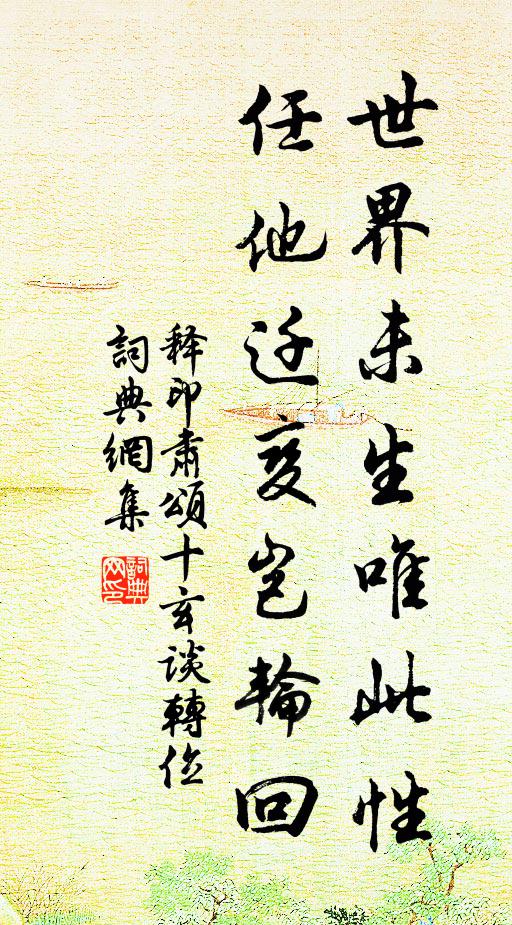 世界未生唯此性
任他迁变岂轮回
释印肃颂十玄谈转位
词典网集
词典网印